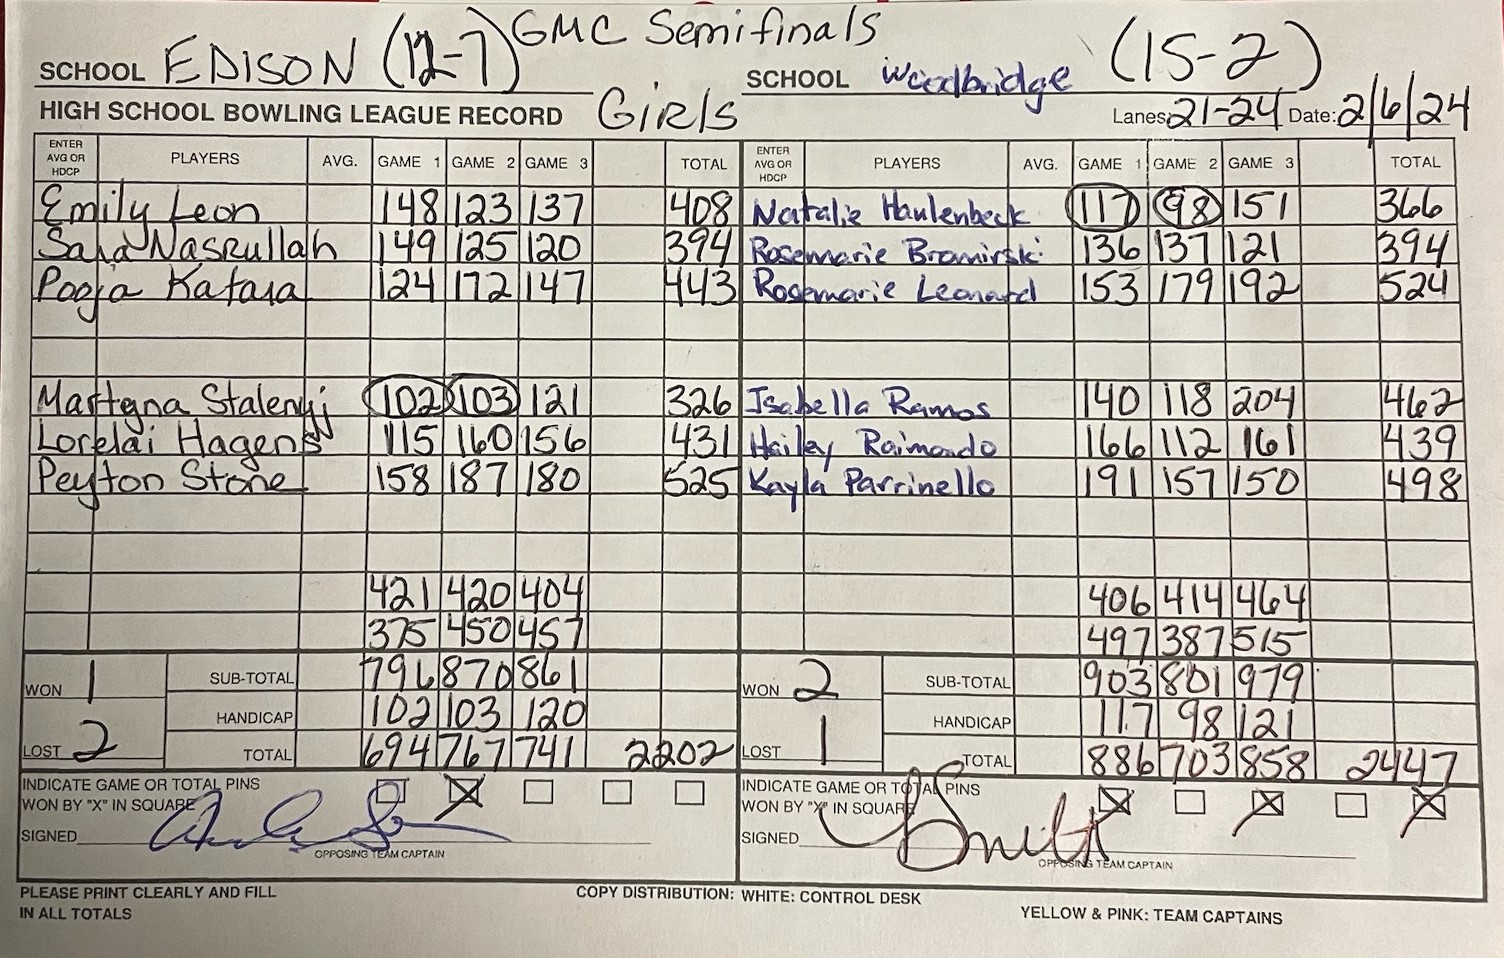 GMC Semifinals
SCHOOL EDISON (12-7) SCHOOL Woodbridge (15-2)
HIGH SCHOOL BOWLING LEAGUE RECORD Girls Lanes: 21-24 Date: 2/6/24
ENTER AVG OR HDCP PLAYERS AVG. GAME 1 GAME 2 GAME 3 TOTAL ENTER AVG OR HDCP PLAYERS AVG. GAME 1 GAME 2 GAME 3 TOTAL
Emily Leon 148 123 137 408 Natalie Haulenbeck 117 98 151 366
Saja Nasrullah 149 125 120 394 Rosemarie Bromirski 136 137 121 394
Pooja Katara 124 172 147 443 Rosemarie Leonard 153 179 192 524
Martyna Stalenyj 102 103 121 326 Isabella Ramos 140 118 204 462
Lorelai Hagens 115 160 156 431 Hailey Raimondo 166 112 161 439
Peyton Stone 158 187 180 525 Kayla Parrinello 191 157 150 498
421 420 404 406 414 464
375 450 457 497 387 515
WON 1 SUB-TOTAL 796 870 861 WON 2 SUB-TOTAL 903 801 979
HANDICAP 102 103 120 HANDICAP 117 98 121
LOST 2 TOTAL 694 767 741 2202 LOST 1 TOTAL 886 703 858 2447
INDICATE GAME OR TOTAL PINS INDICATE GAME OR TOTAL PINS
WON BY "X" IN SQUARE X WON BY "X" IN SQUARE X X X
SIGNED SIGNED Smith
OPPOSING TEAM CAPTAIN OPPOSING TEAM CAPTAIN
PLEASE PRINT CLEARLY AND FILL COPY DISTRIBUTION: WHITE: CONTROL DESK
IN ALL TOTALS YELLOW & PINK: TEAM CAPTAINS